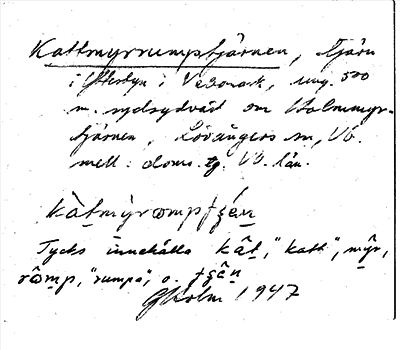 Kattmyrrumptjärnen, tjärn
i Ytterbyn i Vebomark, ung. 500
m. sydsydväst om Holmmyr-
tjärnen, Lövångers sn, Vb.
mell. doms. tg. Vb. län.
kàtmỳrωmpʈʂén
Tycks innehålla kât, "katt", mŷr,
rω̂mp, "rumpa", o. ʈʂên
GHolm 1947